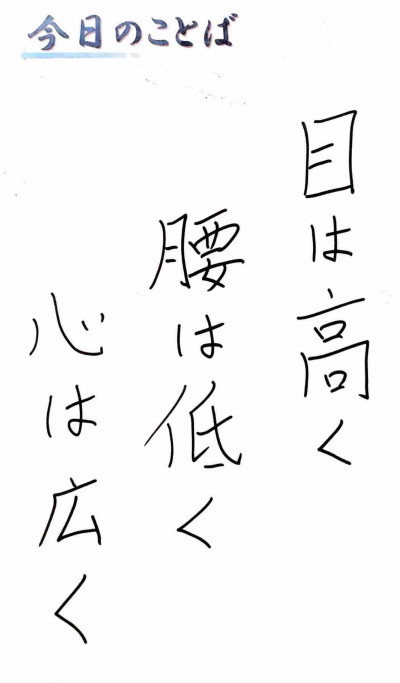 今日のことば
目は高く
腰は低く
心は広く